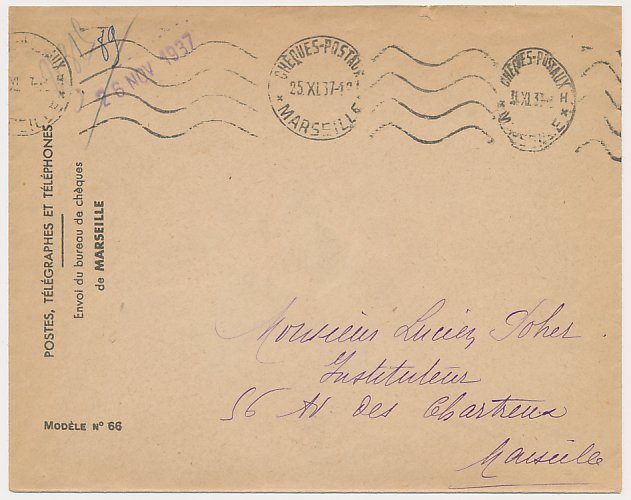 89
26 NOV 1937
CHÈQUES-POSTAUX
25 XI 37-1
MARSEILLE
CHÈQUES-POSTAUX
XI 37
MARSEILLE
POSTES, TÉLÉGRAPHES ET TÉLÉPHONES
Envoi du bureau de chèques
de MARSEILLE
Monsieur Lucien
Instituteur
56 Av. des Chartreux
Marseille
MODÈLE N° 66